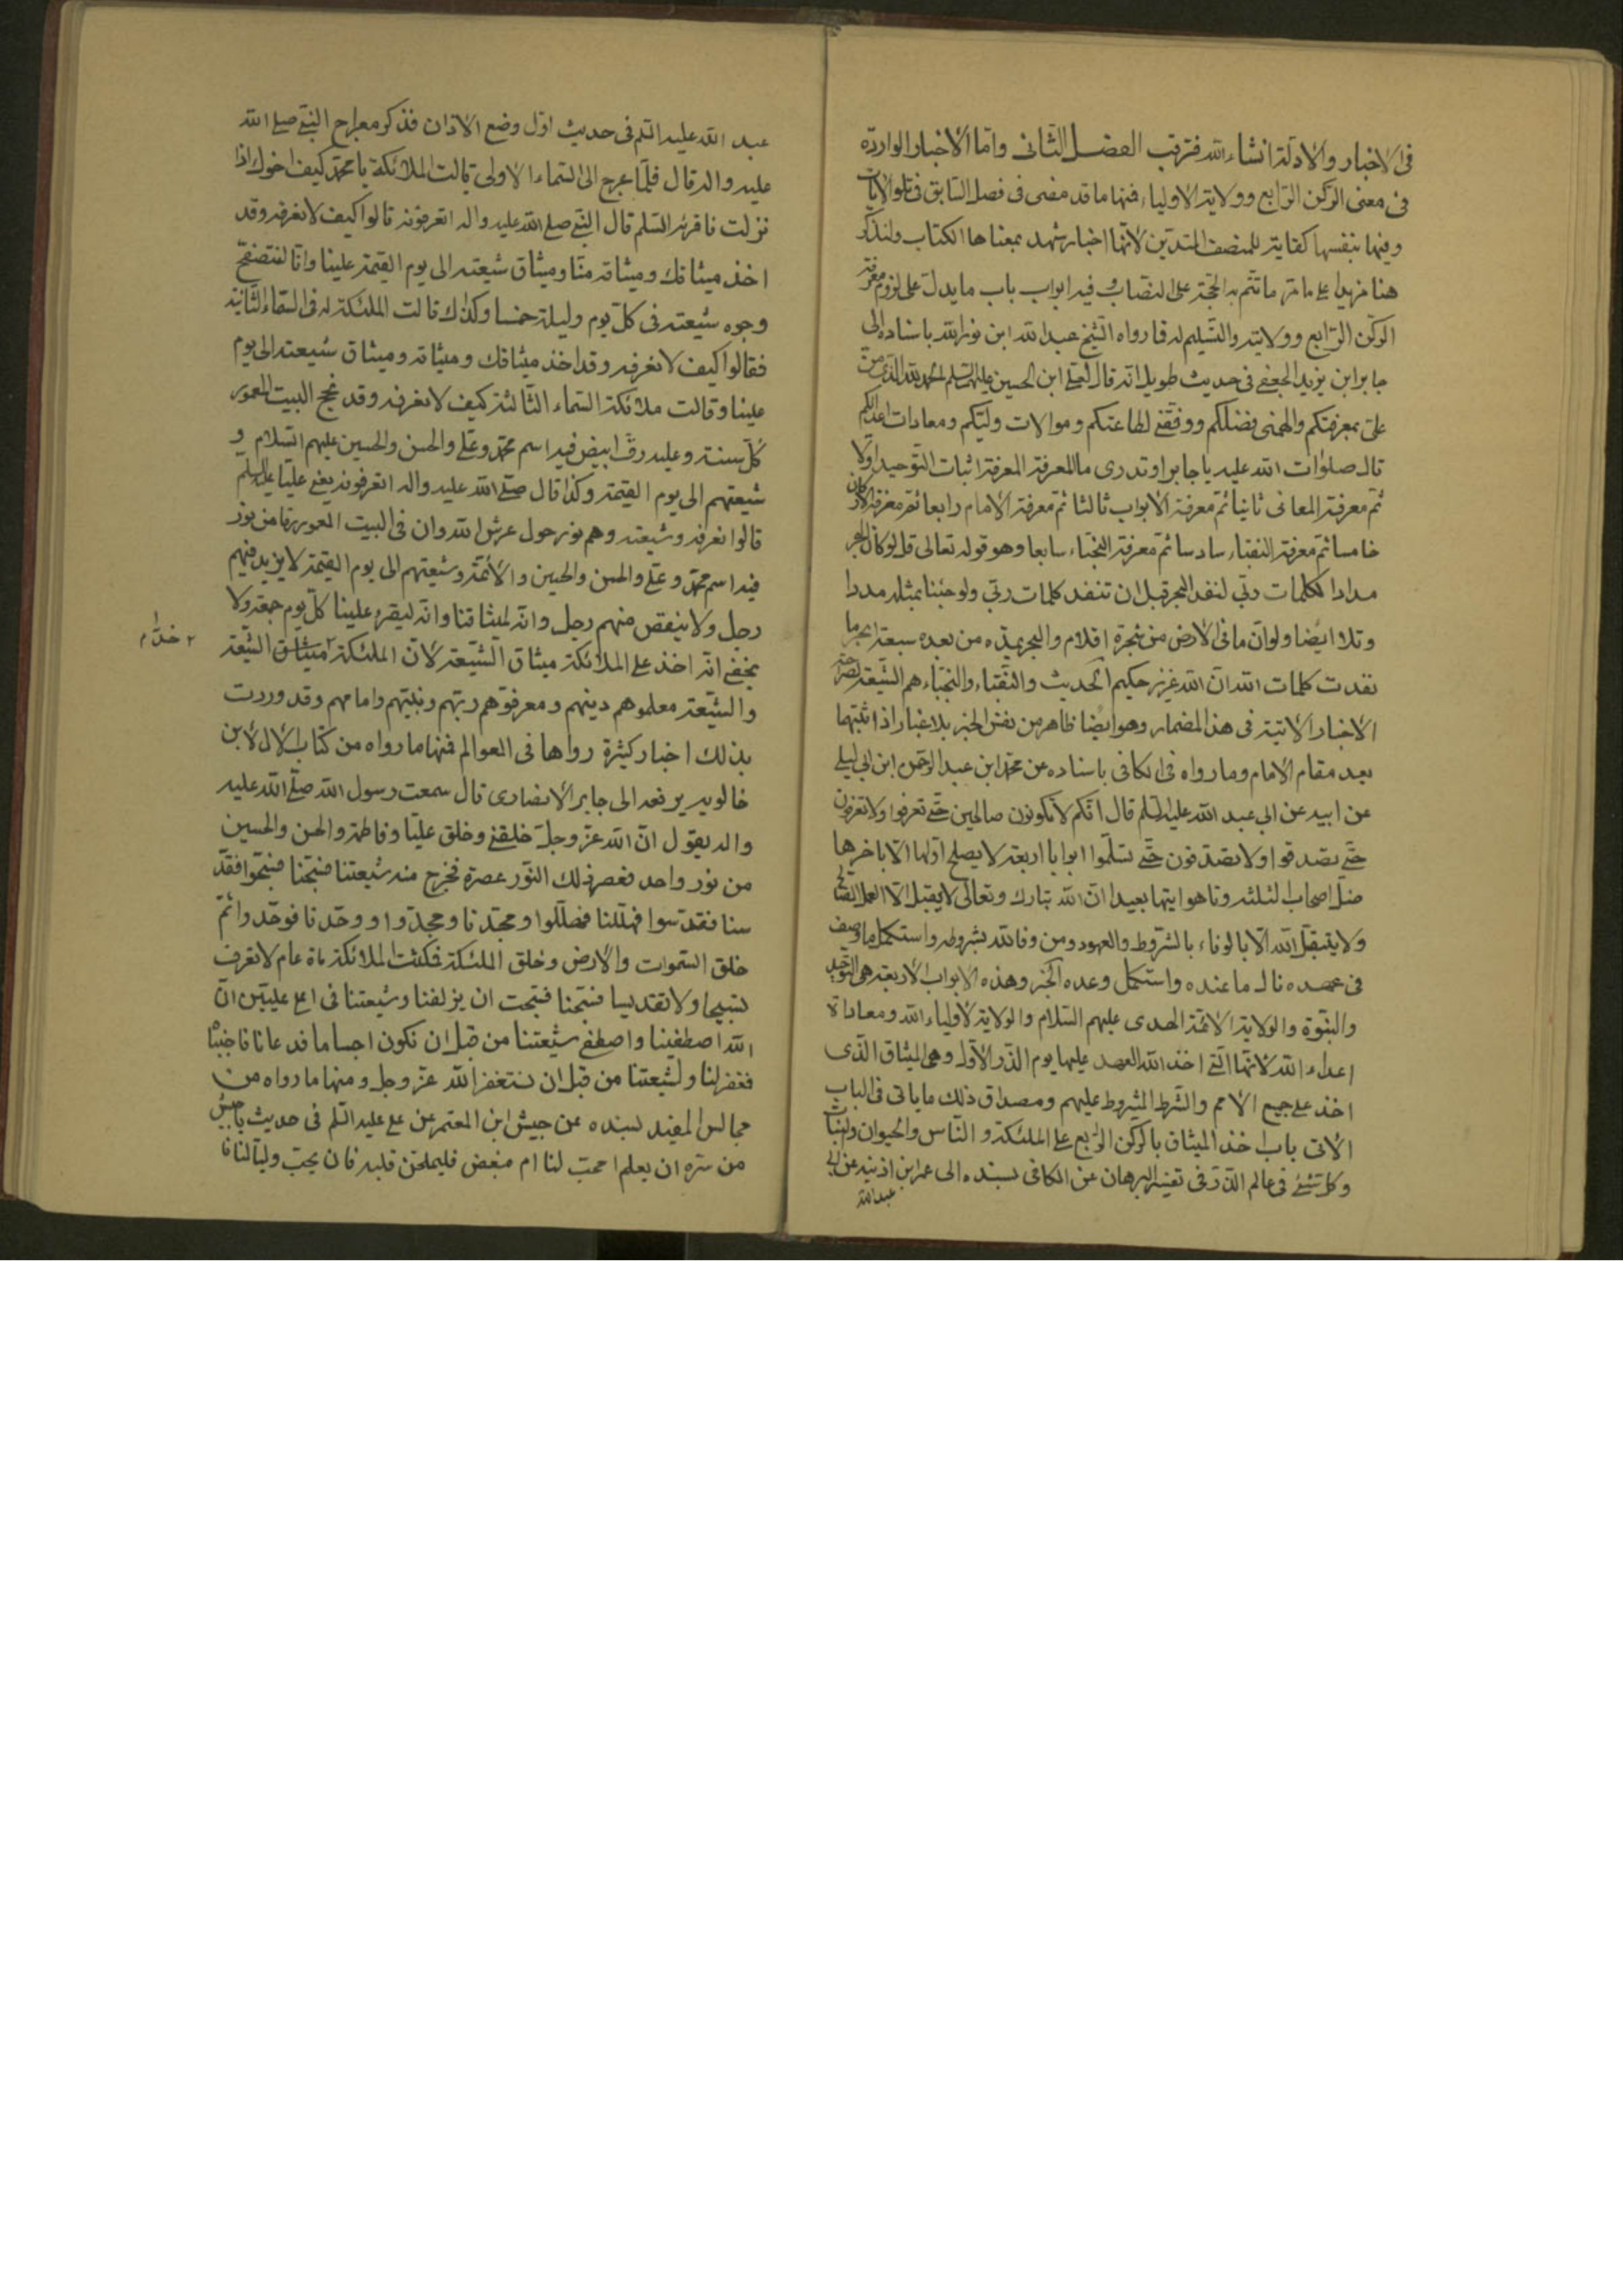 في الاخبار والادلة انشاء الله فترقب الفصل الثاني واما الاخبار الواردة
في معنى الركن الرابع وولاية الاولياء فمنها ما قد مضى في فصل السابق في تلو الايات
وفيها بنفسها كفاية للمنصف المتدين لانها اخبار شهد بمعناها الكتاب ولنذكر
هنا مزيدا على ما مر ما تتم به الحجة على النصاب وفيه ابواب باب ما يدل على لزوم معرفة
الركن الرابع وولايته والتسليم له فما رواه الشيخ عبد الله ابن نور الله باسناده الى
جابر ابن يزيد الجعفي في حديث طويل انه قال لعلي ابن الحسين عليهما السلم الحمد لله الذي من
علي بمعرفتكم والهمني فضلكم ووفقني لطاعتكم وموالات وليكم ومعادات اعدائكم
قال صلوات الله عليه يا جابر اوتدري ما المعرفة المعرفة اثبات التوحيد اولا
ثم معرفة المعاني ثانيا ثم معرفة الابواب ثالثا ثم معرفة الامام رابعا ثم معرفة الاركان
خامسا ثم معرفة النقباء سادسا ثم معرفة النجباء سابعا وهو قوله تعالى قل لو كان البحر
مدادا لكلمات ربي لنفد البحر قبل ان تنفد كلمات ربي ولو جئنا بمثله مددا
وتلا ايضا ولو ان ما في الارض من شجرة اقلام والبحر يمده من بعده سبعة ابحر ما
نفدت كلمات الله ان الله عزيز حكيم الحديث والنقباء والنجباء هم الشيعة لصراحة
الاخبار الاتية في هذا المضمار وهو ايضا ظاهر من نفس الخبر بلا غبار اذ اثبتها
بعد مقام الامام وما رواه في الكافي باسناده عن محمد ابن عبد الرحمن ابن ابي ليلى
عن ابيه عن ابي عبد الله عليه السلم قال انكم لا تكونون صالحين حتى تعرفوا ولا تعرفون
حتى تصدقوا ولا تصدقون حتى تسلموا ابوابا اربعة لا يصلح اولها الا باخرها
ضل اصحاب الثلثة وتاهوا تيها بعيدا ان الله تبارك وتعالى لا يقبل الا العمل الصالح
ولا يتقبل الله الا بالوفاء بالشروط والعهود ومن وفا لله بشروطه واستكمل ما وصف
في عهده نال ما عنده واستكمل وعده الخبر وهذه الابواب الاربعة هي التوحيد
والنبوة والولاية لائمة الهدى عليهم السلام والولاية لاولياء الله ومعاداة
اعداء الله لانها التي اخذ الله العهد عليها يوم الذر الاول وهي الميثاق الذي
اخذ على جميع الامم والشرط المشروط عليهم ومصداق ذلك ما ياتي في الباب
الاتي باب اخذ الميثاق بالركن الرابع على الملئكة والناس والحيوان والنبات
وكل شيء في عالم الذر في تفسير البرهان عن الكافي بسنده الى عمر ابن اذينه عن ابي
عبد الله
عبد الله عليه السلم في حديث اول وضع الاذان فذكر معراج النبي صلى الله
عليه واله قال فلما عرج الى السماء الاولى قالت الملائكة يا محمد كيف اخوك اذا
نزلت فاقرئه السلم قال النبي صلى الله عليه واله اتعرفونه قالوا كيف لا نعرفه وقد
اخذ ميثاقك وميثاقه منا وميثاق شيعته الى يوم القيمة علينا وانا لنتصفح
وجوه شيعته في كل يوم وليلة خمسا وكذلك قالت الملئكة له في السماء الثانية
فقالوا كيف لا نعرفه وقد اخذ ميثاقك وميثاقه وميثاق شيعته الى يوم
علينا وقالت ملائكة السماء الثالثة كيف لا نعرفه وقد نحج البيت المعمور
كل سنة وعليه رق ابيض فيه اسم محمد وعلي والحسن والحسين عليهم السلام و
شيعتهم الى يوم القيمة وكذا قال صلى الله عليه واله اتعرفونه يعني عليا عليه السلم
قالوا نعرفه وشيعته وهم نور حول عرش الله وان في البيت المعمور رقا من نور
فيه اسم محمد وعلي والحسن والحسين والائمة وشيعتهم الى يوم القيمة لا يزيد فيهم
رجل ولا ينقص منهم رجل وانه لميثاقنا وانه ليقرء علينا كل يوم جمعة ولا
يخفى انه اخذ على الملائكة ميثاق الشيعة لان الملئكة ميثاق الشيعة
خدام
والشيعة معلموهم دينهم ومعرفوهم ربهم ونبيهم وامامهم وقد وردت
بذلك اخبار كثيرة رواها في العوالم فمنها ما رواه من كتاب الال لابن
خالويه يرفعه الى جابر الانصاري قال سمعت رسول الله صلى الله عليه
واله يقول ان الله عز وجل خلقني وخلق عليا وفاطمة والحسن والحسين
من نور واحد فعصر ذلك النور عصرة فخرج منه شيعتنا فسبحنا فسبحوا فقد
سنا فقدسوا فهللنا فهللوا ومجدنا ومجدوا ووحدنا فوحدوا ثم
خلق السموات والارض وخلق الملئكة فمكثت الملائكة ماة عام لا تعرف
تسبيحا ولا تقديسا فسبحنا فسبحت ان يزلفنا وشيعتنا في اعلى عليين ان
الله اصطفينا واصطفى شيعتنا من قبل ان نكون اجساما فدعانا فاجبنا
فغفر لنا ولشيعتنا من قبل ان نستغفر الله عز وجل ومنها ما رواه من
مجالس المفيد بسنده عن جيش ابن المعتمر عن علي عليه السلم في حديث يا جيش
من سره ان يعلم امحب لنا ام مبغض فليمتحن قلبه فان يحب وليا لنا فا